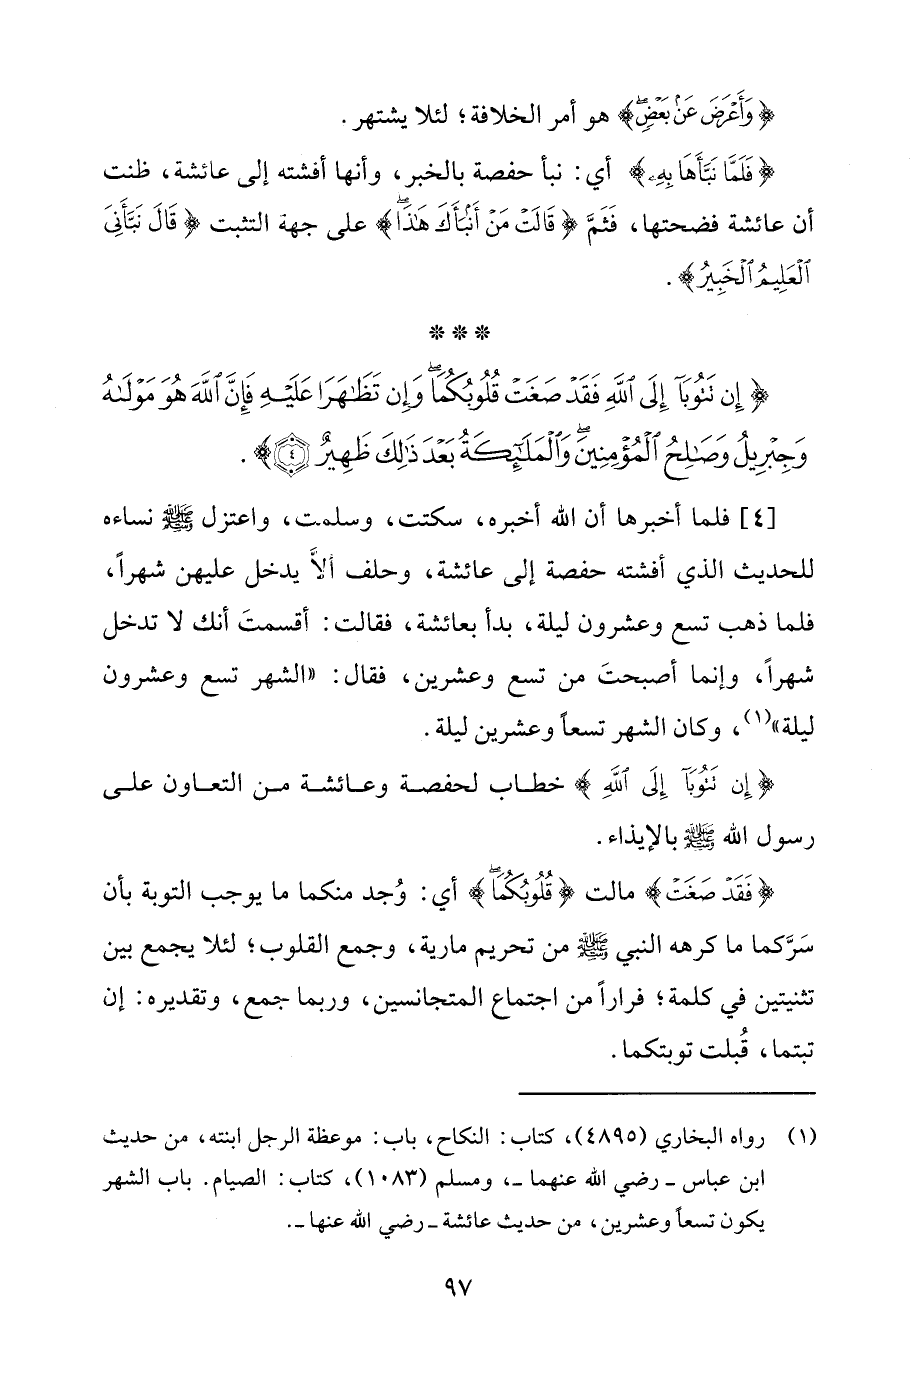 ﴿وَأَعْرَضَ عَنۢ بَعْضٖۖ﴾ هو أمر الخلافة؛ لئلا يشتهر.
﴿فَلَمَّا نَبَّأَهَا بِهِۦ﴾ أي: نبأ حفصة بالخبر، وأنها أفشته إلى عائشة، ظنت
أن عائشة فضحتها، فَثَمَّ ﴿قَالَتْ مَنْ أَنۢبَأَكَ هَٰذَاۖ﴾ على جهة التثبت ﴿قَالَ نَبَّأَنِيَ
ٱلْعَلِيمُ ٱلْخَبِيرُ﴾.
***
﴿إِن تَتُوبَآ إِلَى ٱللَّهِ فَقَدْ صَغَتْ قُلُوبُكُمَاۖ وَإِن تَظَٰهَرَا عَلَيْهِ فَإِنَّ ٱللَّهَ هُوَ مَوْلَىٰهُ
وَجِبْرِيلُ وَصَٰلِحُ ٱلْمُؤْمِنِينَۖ وَٱلْمَلَٰٓئِكَةُ بَعْدَ ذَٰلِكَ ظَهِيرٌ ۝٤﴾.
[٤] فلما أخبرها أن الله أخبره، سكتت، وسلمت، واعتزل ﷺ نساءه
للحديث الذي أفشته حفصة إلى عائشة، وحلف ألاَّ يدخل عليهن شهراً،
فلما ذهب تسع وعشرون ليلة، بدأ بعائشة، فقالت: أقسمتَ أنك لا تدخل
شهراً، وإنما أصبحتَ من تسع وعشرين، فقال: «الشهر تسع وعشرون
ليلة»(١)، وكان الشهر تسعاً وعشرين ليلة.
﴿إِن تَتُوبَآ إِلَى ٱللَّهِ﴾ خطاب لحفصة وعائشة من التعاون على
رسول الله ﷺ بالإيذاء.
﴿فَقَدْ صَغَتْ﴾ مالت ﴿قُلُوبُكُمَاۖ﴾ أي: وُجد منكما ما يوجب التوبة بأن
سَرَّكما ما كرهه النبي ﷺ من تحريم مارية، وجمع القلوب؛ لئلا يجمع بين
تثنيتين في كلمة؛ فراراً من اجتماع المتجانسين، وربما جمع، وتقديره: إن
تبتما، قُبلت توبتكما.
(١) رواه البخاري (٤٨٩٥)، كتاب: النكاح، باب: موعظة الرجل ابنته، من حديث
ابن عباس ـ رضي الله عنهما ـ، ومسلم (١٠٨٣)، كتاب: الصيام. باب الشهر
يكون تسعاً وعشرين، من حديث عائشة ـ رضي الله عنها ـ.
٩٧